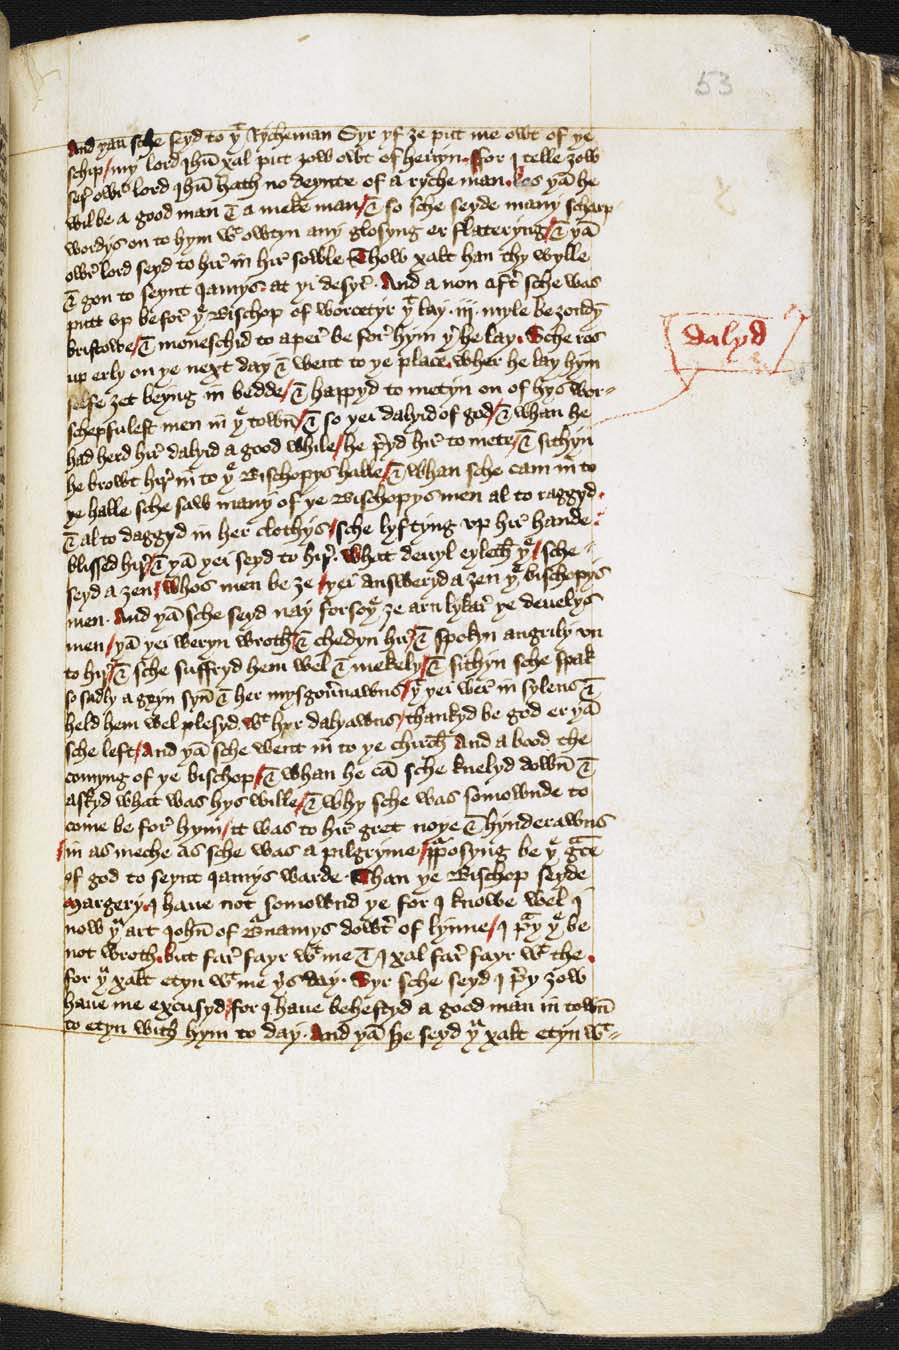 53
And yan sche seyd to yͤ Rycheman Syr yf ze put me owt of ye
schip / my lord Ihū xal put zow owt of heuyn. for I telle zow
owr̄ lord Ihū hath no deynte of a ryche man. les yā he
wil be a good man & a meke man / & so sche seyde many scharp
wordys on to hym wᵗ owtyn any glosyng er flateryng / & yā
owr̄ lord seyd to hir̄ in hir̄ sowle Thow xalt han thy wylle
& gon to seynt Iamys at yi desyr̄. And a non aftr̄ sche was
putt vp be for̄ yͤ Bischop of worcetyr yᵗ lay .iij. myle be zondyn̄
bristowe / & moneschid to aper̄ be for̄ hym yᵉr he lay. Sche ros
up erly on ye next day & went to ye place. wher he lay hym
selfe zet beyng in bedde / & happyd to metyn on of hys wor=
schepfulest men in yͤ town̄ / & so yei dalyid of god / & whan he
had herd hir̄ dalyid a good while / he p̄yd hir̄ to mete / & sithyn
he browt hir̄ in to yͤ Bischopys halle / & whan sche cam in to
ye halle sche saw many of ye Bischopys men al to raggyd.
& al to daggyd in her clothys / sche lyftyng vp hir̄ hande
blissed hir̄ / & yā yei seyd to hir̄. what deuyl eyleth yͤ / sche =
seyd a zen / whos men be ze / yei answeryd a zen yͤ bischopys
men. And yā sche seyd nay forsoyͤ ze arn lykar̄ ye deuelys
men / yā yei weryn wroth & chedyn hir̄ / & spokyn angrily vn
to hir̄ / & sche suffryd hem wel & mekely / & sithyn sche spak
so sadly a geyn syn̄ & her mysgou̅nawns / yᵗ yei wer̄ in sylens &
held hem wel plesyd wᵗ hyr dalyawns / thankyd be god er yā
sche left / And yā sche went in to ye chirch And a bood the
comyng of ye bischop / & whan he cā sche knelyd down̄ &
askyd what was hys wille / & why sche was somownde to
come be for̄ hym / it was to hir̄ gret noye & hynderawns
/ in as meche as sche was a pilgryme / p̱posyng be yͤ grāce
of god to seynt Iamys warde. Than ye Bischop seyde
Margery. I haue not somownd ye for I knowe wel I
now yᵘ art Iohn̄ of Bᵘnamys dowtr̄ of lynne / I pᵃy yͤ be
not wroth. but far̄ fayr wᵗ me & I xal far̄ fayr wᵗ the.
for yᵘ xalt etyn wᵗ me yis day. Syr sche seyd I p̄y zow
haue me excusyd / for I haue behestyd a good man in town̄
to etyn with hym to day. And yā he seyd yᵘ xalt etyn wᵗ =
dalyd